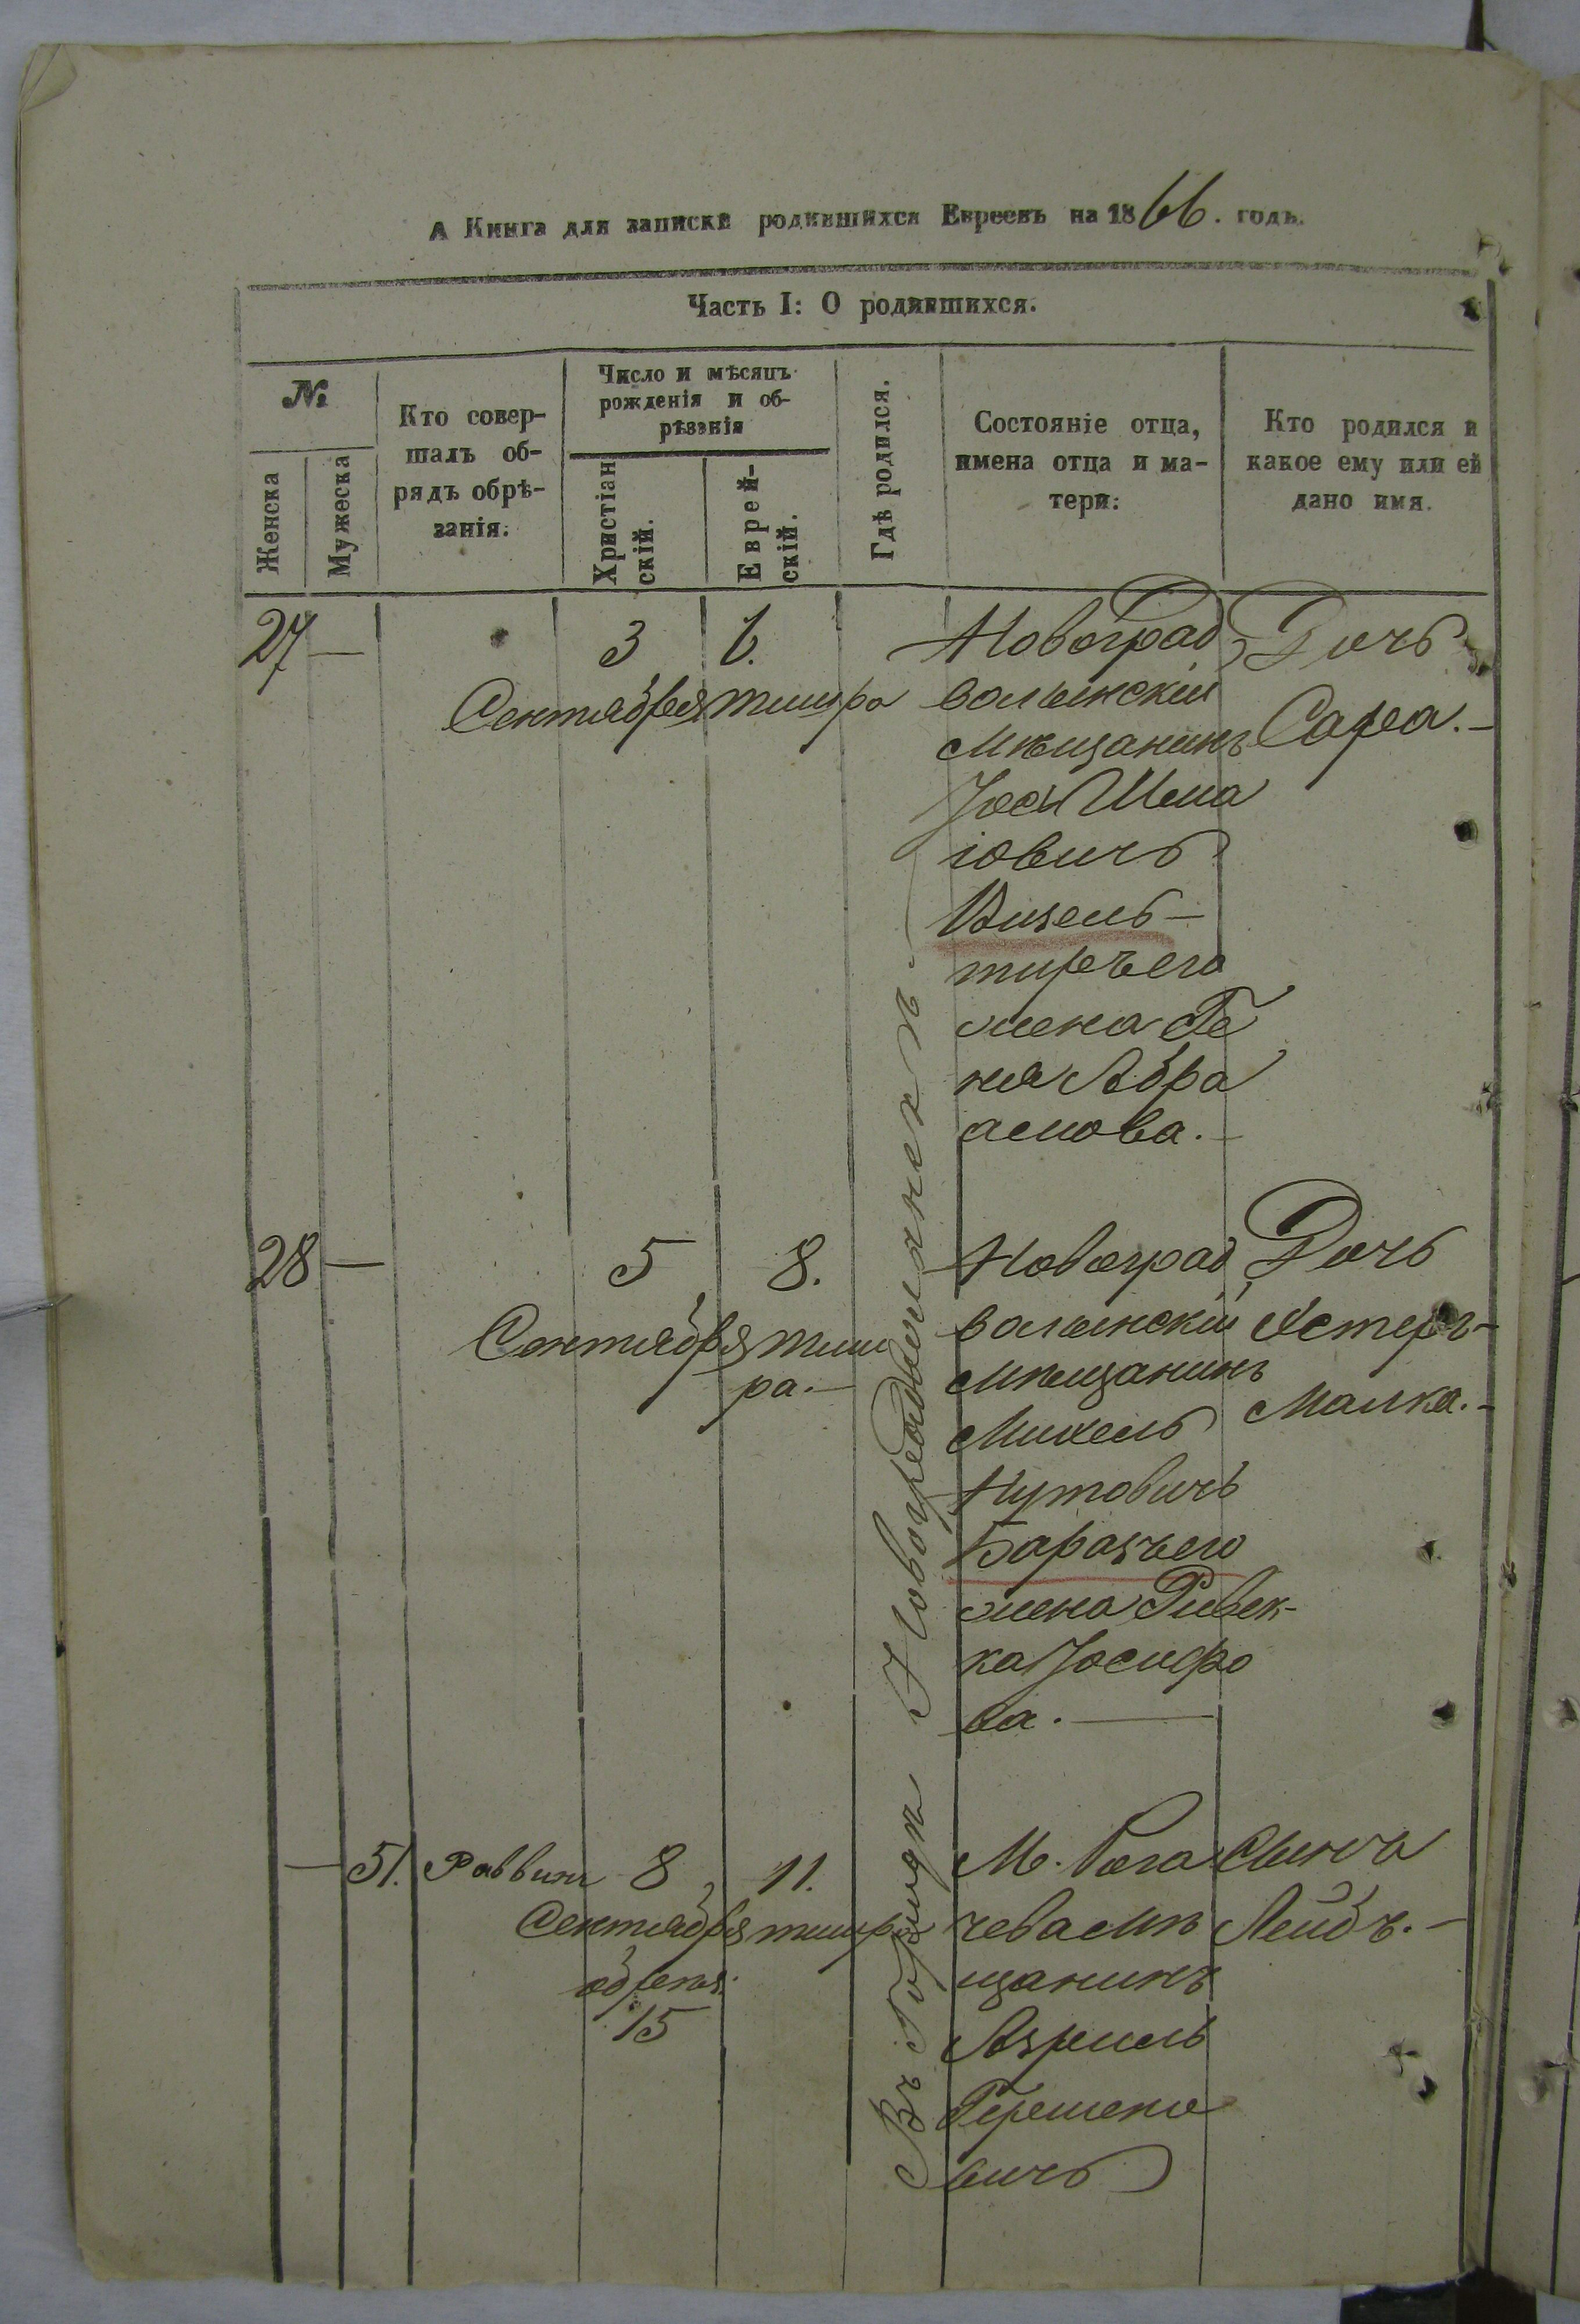 А Книга для записки родившихся Евреевъ на 1866. годъ.
Часть I: О родившихся.
№
Женска
Мужеска
Кто совер-
шалъ об-
рядъ обрѣ-
занія.
Число и мѣсяцъ
рожденія и об-
рѣзанія
Христіан
скій.
Еврей-
скій.
Гдѣ родился.
Состояніе отца,
имена отца и ма-
тери:
Кто родился и
какое ему или ей
дано имя.
Въ Городѣ Новоградволынскѣ
27 —
3 6.
Сентября тишра
Новоград
волынскій
мѣщанинъ
Іось Шма
іовичъ
Визель-
тиръ его
жена Ге
ня Абра
амова.
Дочь
Сара. —
28 —
5 8.
Сентября тиш
ра. —
Новоград
волынскій
мѣщанинъ
Михель
Нутовичъ
Баразъ его
жена Ривек-
ка Іосифо
ва. —
Дочь
Эстеръ-
Малка. —
— 51. Раввинъ 8 11.
Сентября тишр
обрѣза:
15
М. Рога
чева мѣ
щанинъ
Азриель
Гершено
вичъ
Сынъ
Лейбъ. —